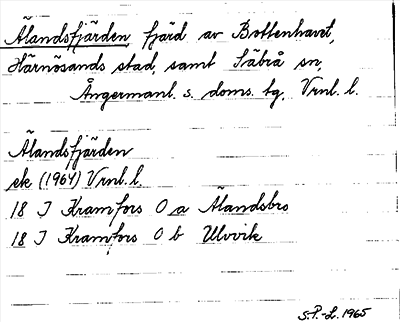 Älandsfjärden, fjärd av Bottenhavet,
Härnösands stad, samt Säbrå sn,
Ångermanl. s. doms. tg, Vrnl. l.
Älandsfjärden
ek (1964) Vrnl. l.
18 J Kramfors O a Älandsbro
18 J Kramfors O b Ulvvik
S.P.-L. 1965